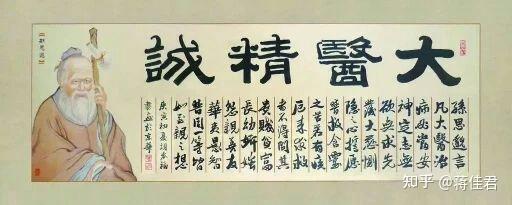 大醫精誠
孫思邈言
凡大醫治
病必當安
神定志無
欲無求先
發大慈惻
隱之心誓願
普救含靈
之苦若有疾
厄来求救
者不得問其
貴賤貧富
長幼妍蚩
怨親善友
華夷愚智
普同一等皆
如至親之想
庚寅初夏胡
書於京華
孫思邈
知乎 @蒋佳君